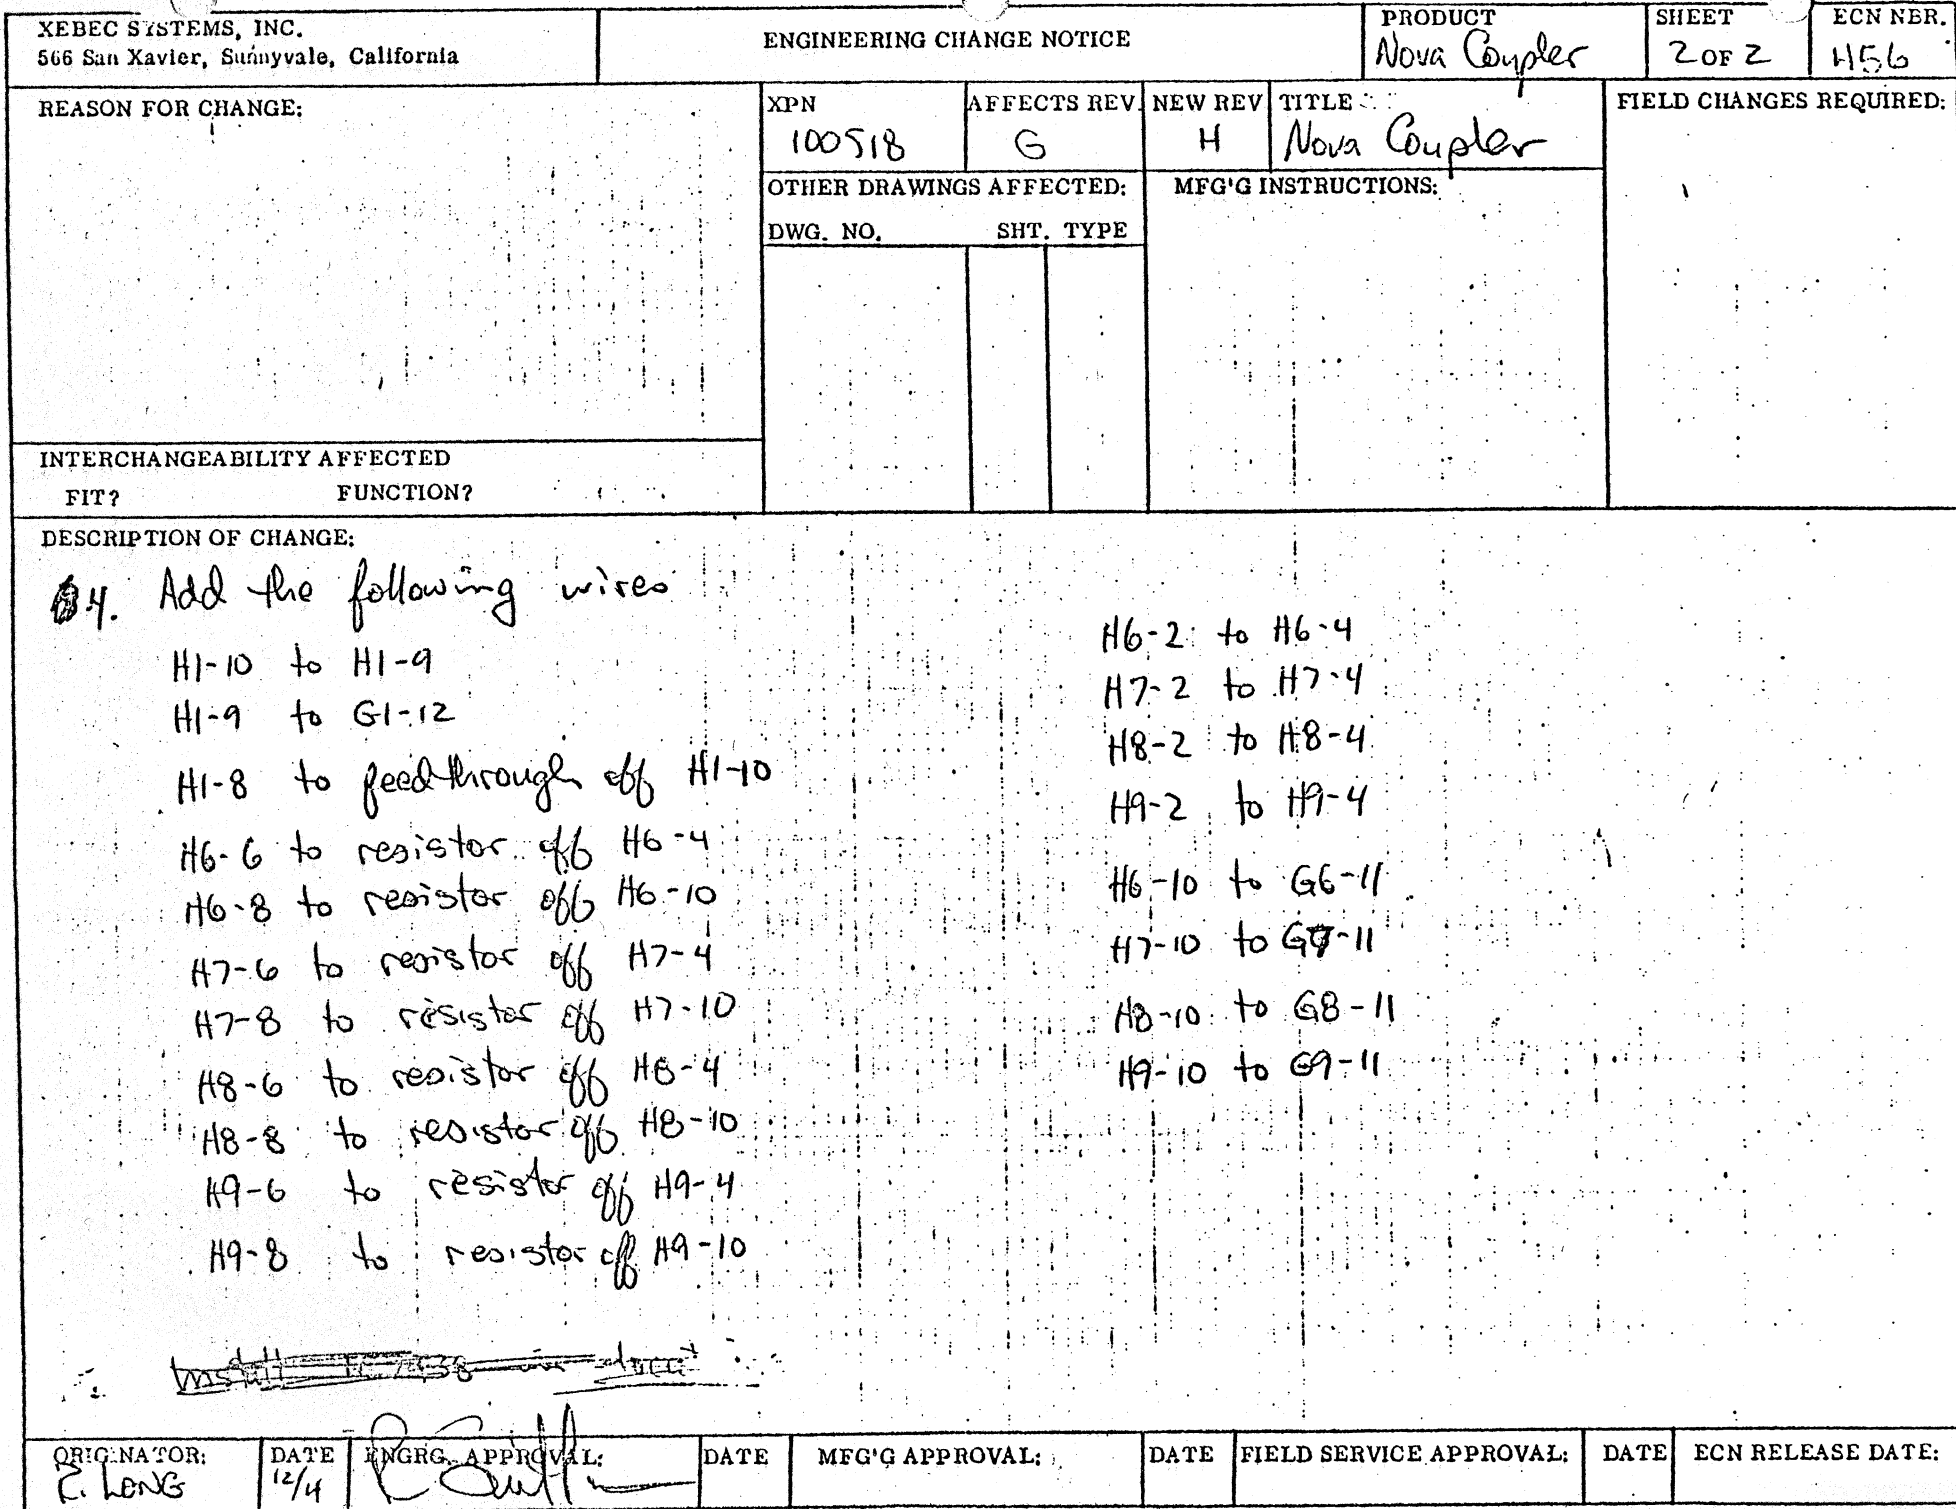 XEBEC SYSTEMS, INC.
566 San Xavier, Sunnyvale, California
ENGINEERING CHANGE NOTICE
PRODUCT
Nova Coupler
SHEET
2 OF 2
ECN NBR.
456
REASON FOR CHANGE:
XPN
100518
AFFECTS REV.
G
NEW REV
H
TITLE
Nova Coupler
FIELD CHANGES REQUIRED:
OTHER DRAWINGS AFFECTED:
DWG. NO. SHT. TYPE
MFG'G INSTRUCTIONS:
INTERCHANGEABILITY AFFECTED
FIT? FUNCTION?
DESCRIPTION OF CHANGE:
4. Add the following wires
H1-10 to H1-9
H1-9 to G1-12
H1-8 to feedthrough off H1-10
H6-6 to resistor off H6-4
H6-8 to resistor off H6-10
H7-6 to resistor off H7-4
H7-8 to resistor off H7-10
H8-6 to resistor off H8-4
H8-8 to resistor off H8-10
H9-6 to resistor off H9-4
H9-8 to resistor off H9-10
H6-2 to H6-4
H7-2 to H7-4
H8-2 to H8-4
H9-2 to H9-4
H6-10 to G6-11
H7-10 to G7-11
H8-10 to G8-11
H9-10 to G9-11
Install
ORIGINATOR:
R. LONG
DATE
12/4
ENGRG. APPROVAL:
DATE
MFG'G APPROVAL:
DATE
FIELD SERVICE APPROVAL:
DATE
ECN RELEASE DATE: